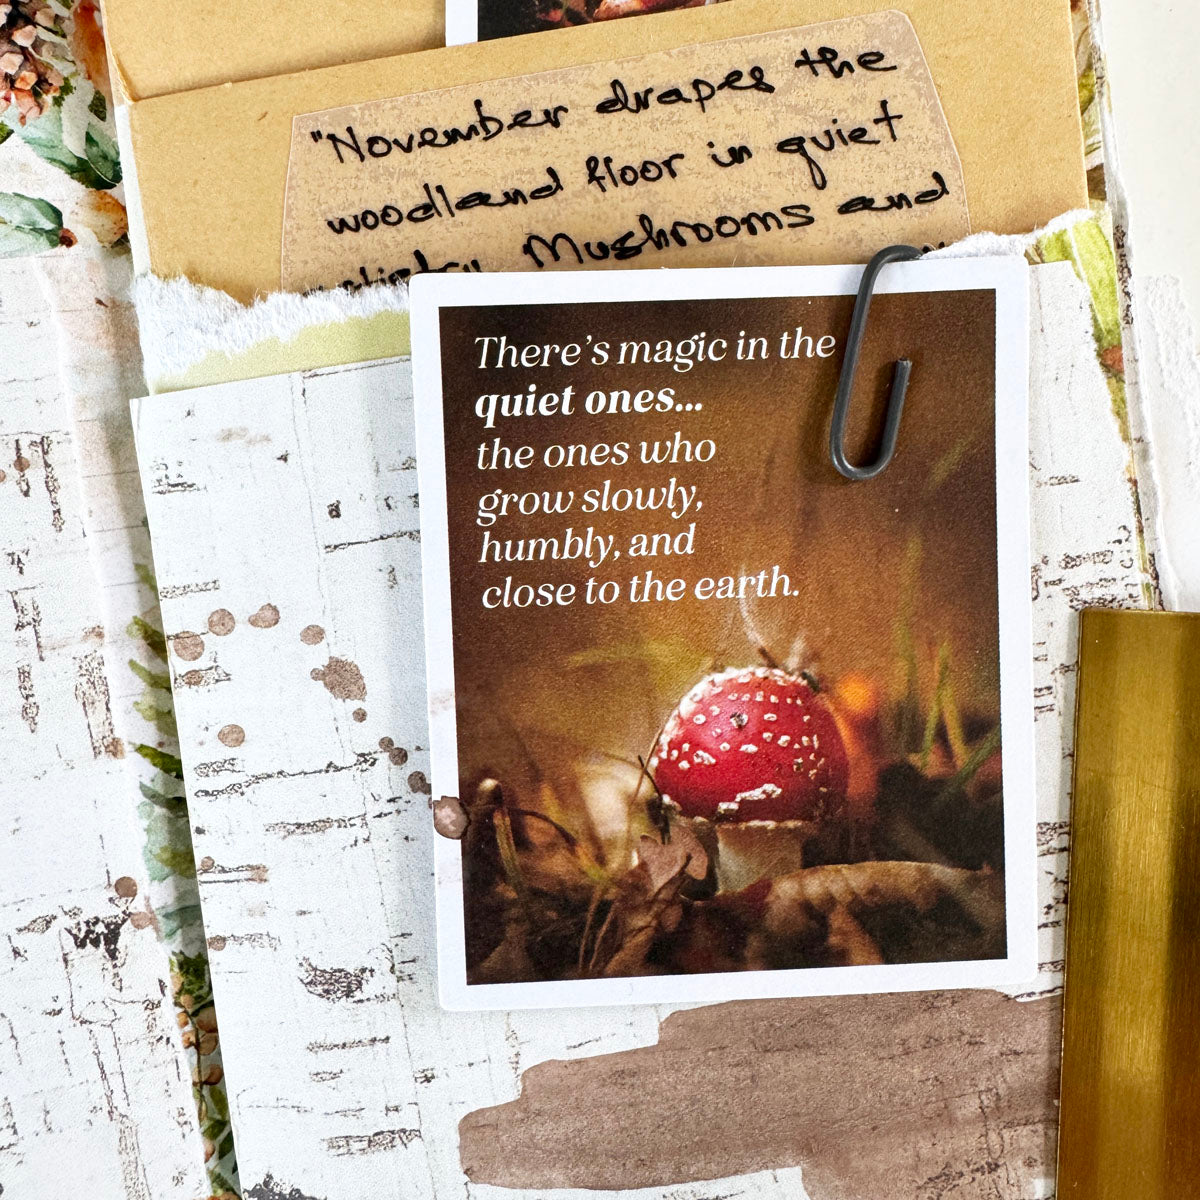 "November drapes the
woodland floor in quiet
artistry. Mushrooms and
There's magic in the
quiet ones...
the ones who
grow slowly,
humbly, and
close to the earth.